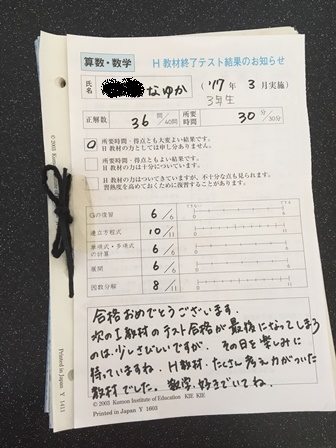 算数・数学
H教材終了テスト結果のお知らせ
氏名
なゆか
('17年 3月実施)
3年生
正解数
36 問/40問
所要時間
30 分/30分
所要時間・得点とも大変よい結果です。
H教材の力としては申し分ありません。
所要時間・得点ともよい結果です。
H教材の力は十分についています。
H教材の力はついてきていますが、不十分な点も見られます。
習熟度を高めておくために復習することがあります。
Gの復習 6/6
連立方程式 10/11
単項式・多項式の計算 6/6
展開 6/6
因数分解 8/11
合格おめでとうございます。
次のI教材のテスト合格が最後になってしまう
のは少しさびしいですが、その日を楽しみに
待っていますね。H教材・たくさん考える力がついた
教材でした。数学、好きでいてね。
© 2003 Kumon Institute of Education KIE KIE
Printed in Japan Y 1603
Printed in Japan Y 1411